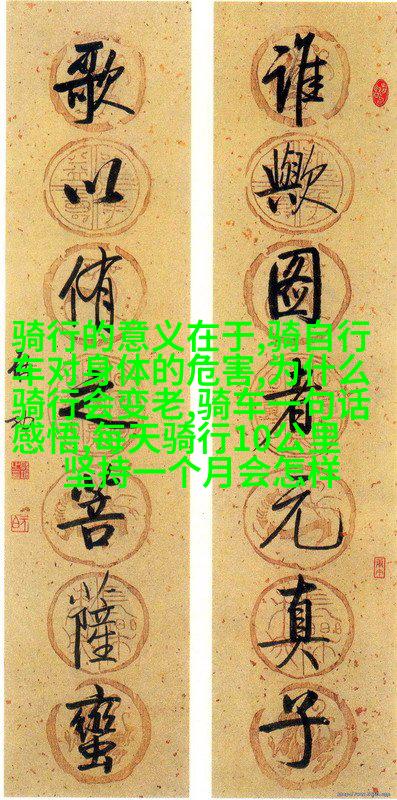 誰歟圖者元真子
歌以侑之菩薩蠻
骑行的意义在于,骑自行
车对身体的危害,为什么
骑行会变老,骑车一句话
感悟,每天骑行10公里
坚持一个月会怎样